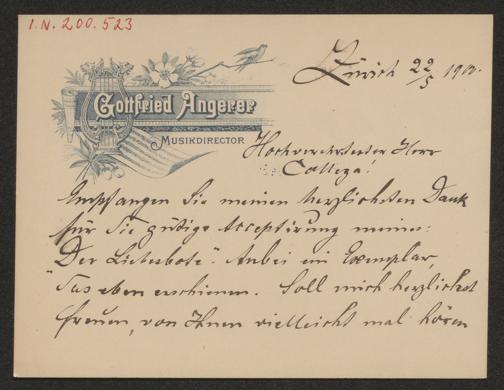 I.N. 200.523
Zürich 22/5 1900.
Gottfried Angerer
MUSIKDIRECTOR
Hochverehrtester Herr
College!
Empfangen Sie meinen herzlichsten Dank
für die gütige Acceptirung meines:
"Der Liebesbote". Anbei ein Exemplar,
das eben erschienen. Soll mich herzlichst
freuen, von Ihnen vielleicht mal hören